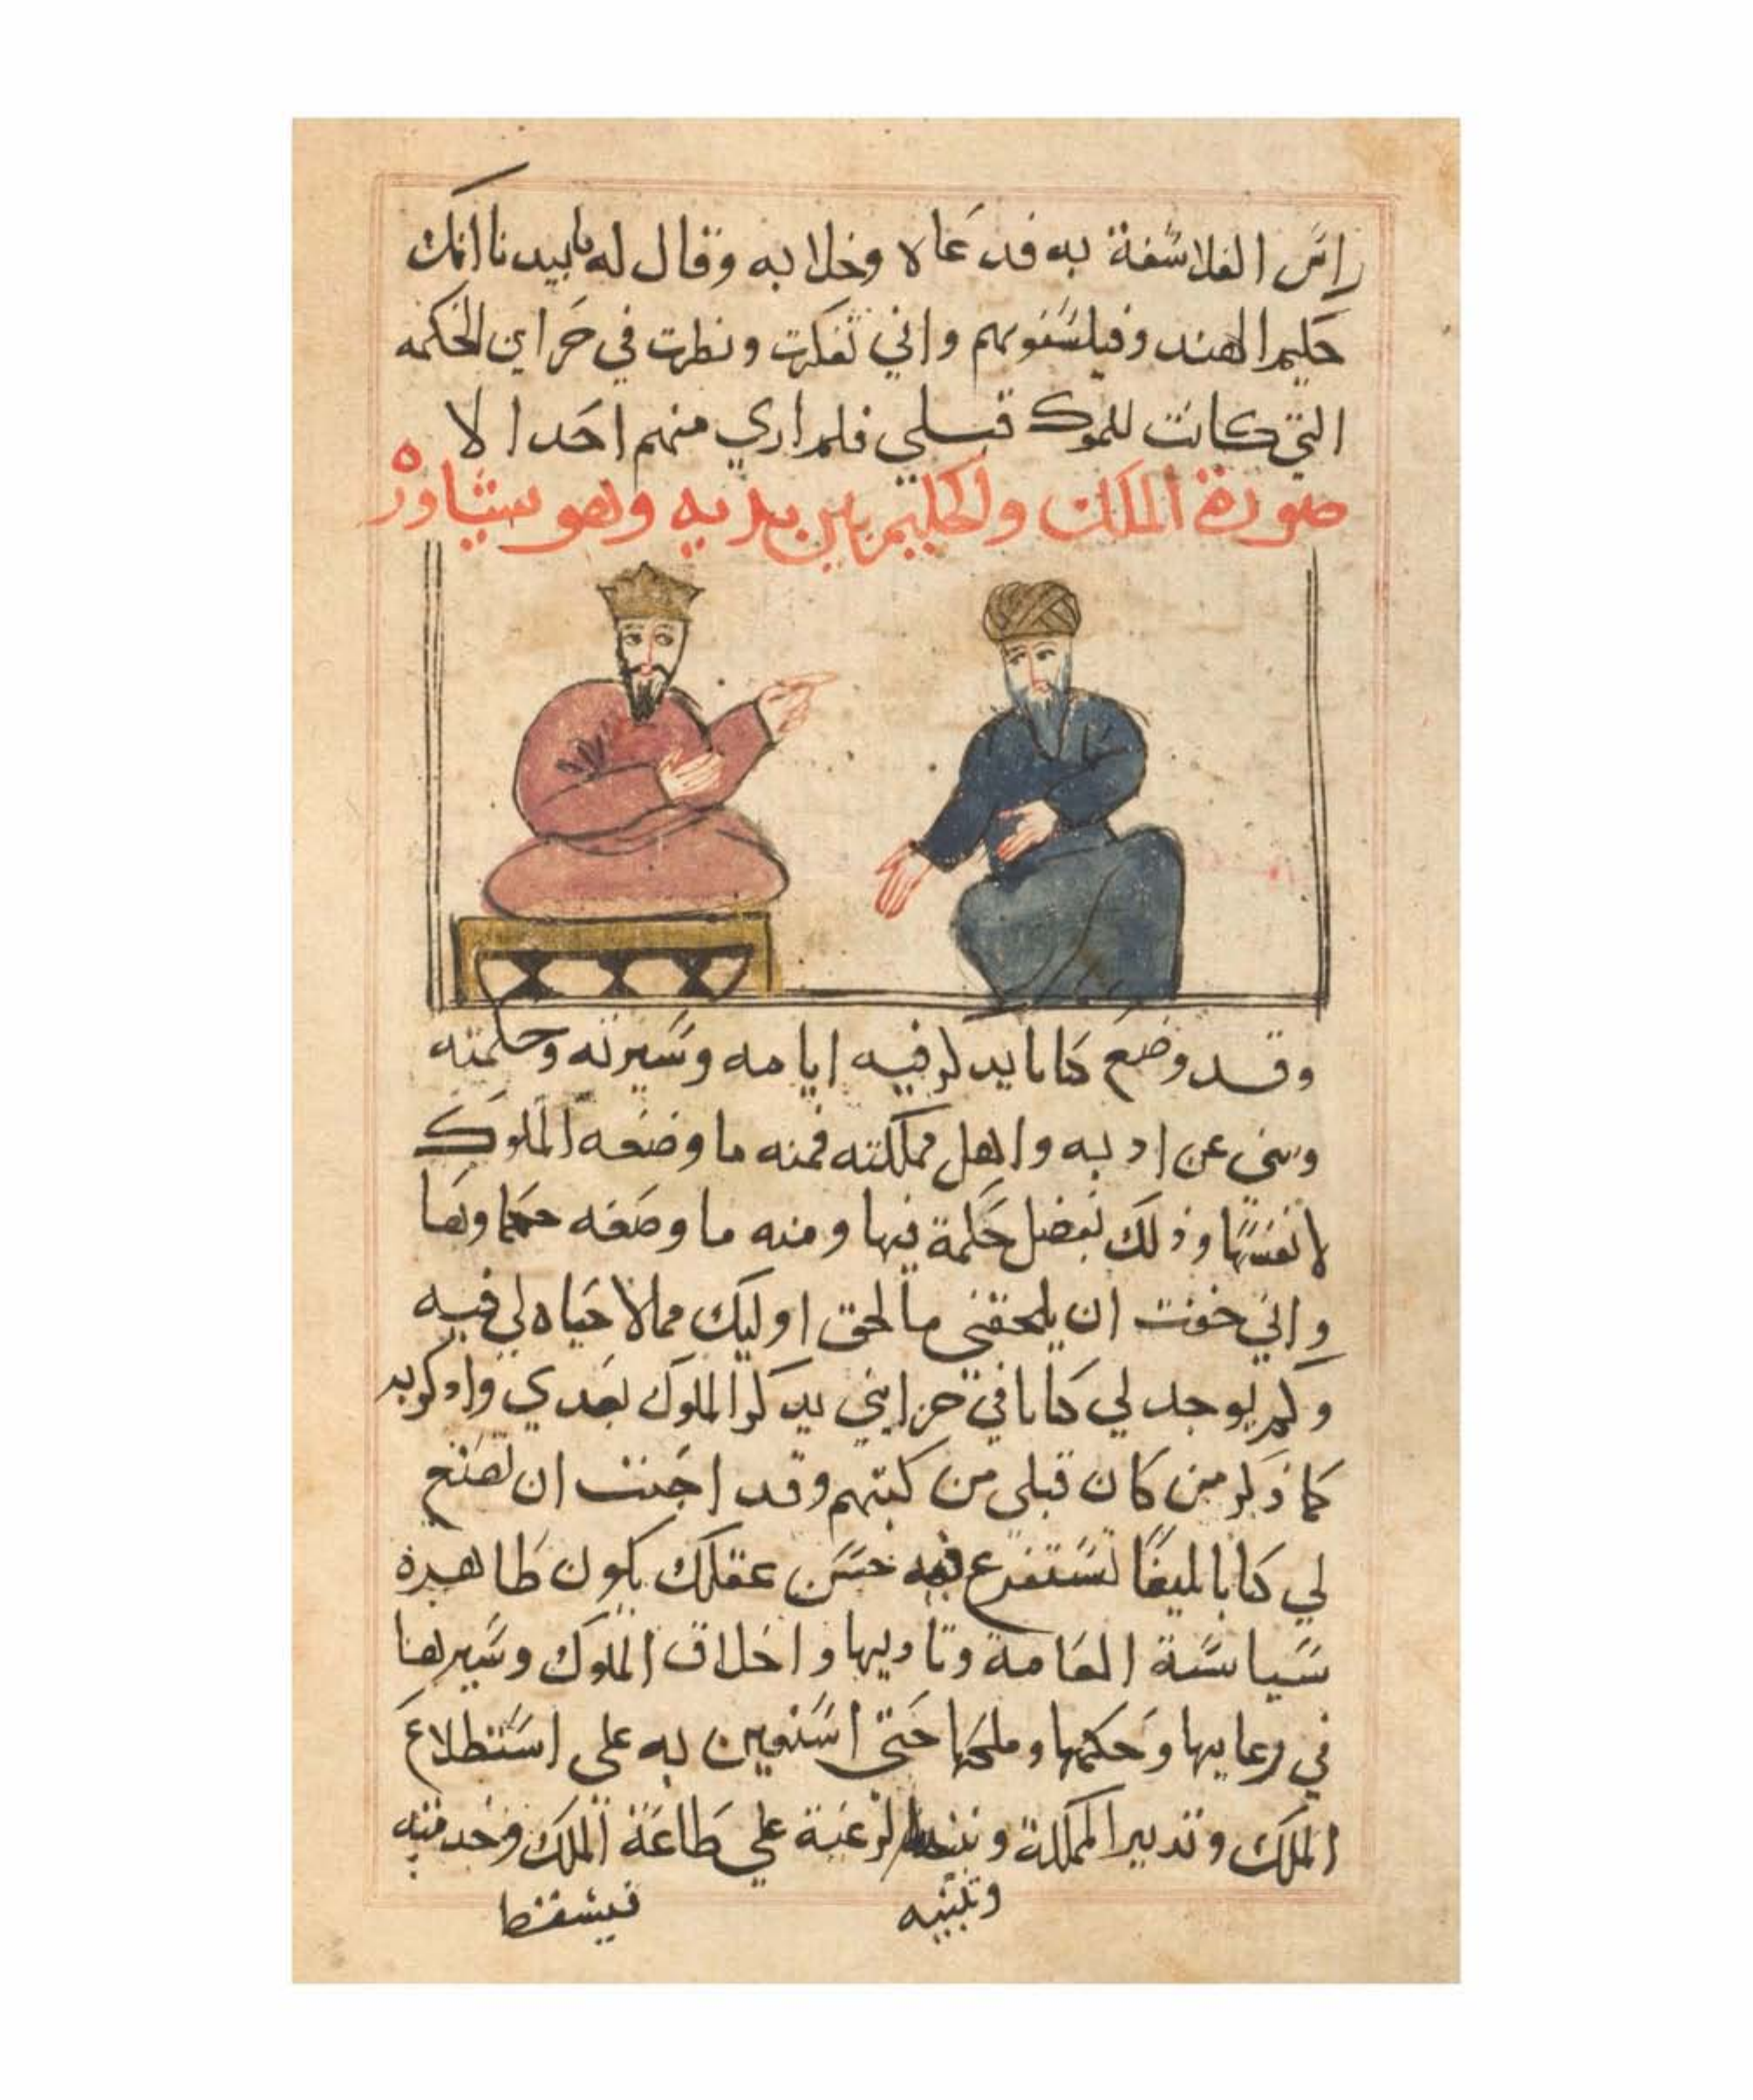 راس الفلاسفة به فدعاه وخلا به وقال له يا بيدنا انك
حكيم الهند وفيلسوفهم واني تفكرت ونظرت في خزاين الحكمه
التي كانت للموك قبلي فلم اري منهم احدا الا
صورة الملك والحكيم بين يديه وهو يشاوره
وقد وضع كتابا يدكر فيه ايامه وسيرته وحكمته
وينبي عن ادبه واهل مملكته فمنه ما وضعه الملوك
لانفسها وذلك بفضل حكمة فيها ومنه ما وضعه حكماوها
واني خفت ان يلحقني ما لحق اوليك مما لا حياه لي فيه
ولم يوجد لي كتابا في خزايني يدكر الملوك بعدي وادكر به
كما ذكر من كان قبلي من كتبهم وقد احببت ان تضع
لي كتابا بليغا تستفرغ فيه حسن عقلك يكون ظاهره
سياسة العامة وتاديبها واخلاق الملوك وسيرها
في رعاييها وحكمها وملحها حتى استعين به على استطلاع
الملك وتدبير المملكة الرغبة علي طاعة الملك وخدمته
وتلبيه